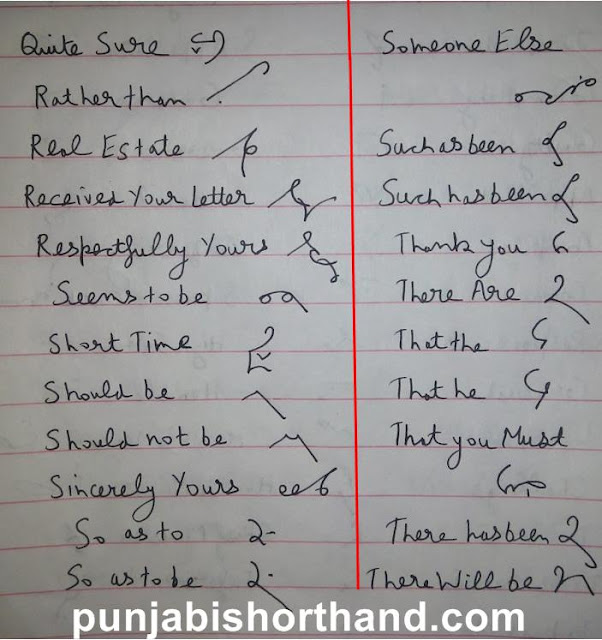 Quite Sure
Rather than
Real Estate
Received Your Letter
Respectfully Yours
Seems to be
Short Time
Should be
Should not be
Sincerely Yours
So as to
So as to be
Someone Else
Such as been
Such has been
Thank you
There Are
That the
That he
That you Must
There has been
There Will be
punjabishorthand.com